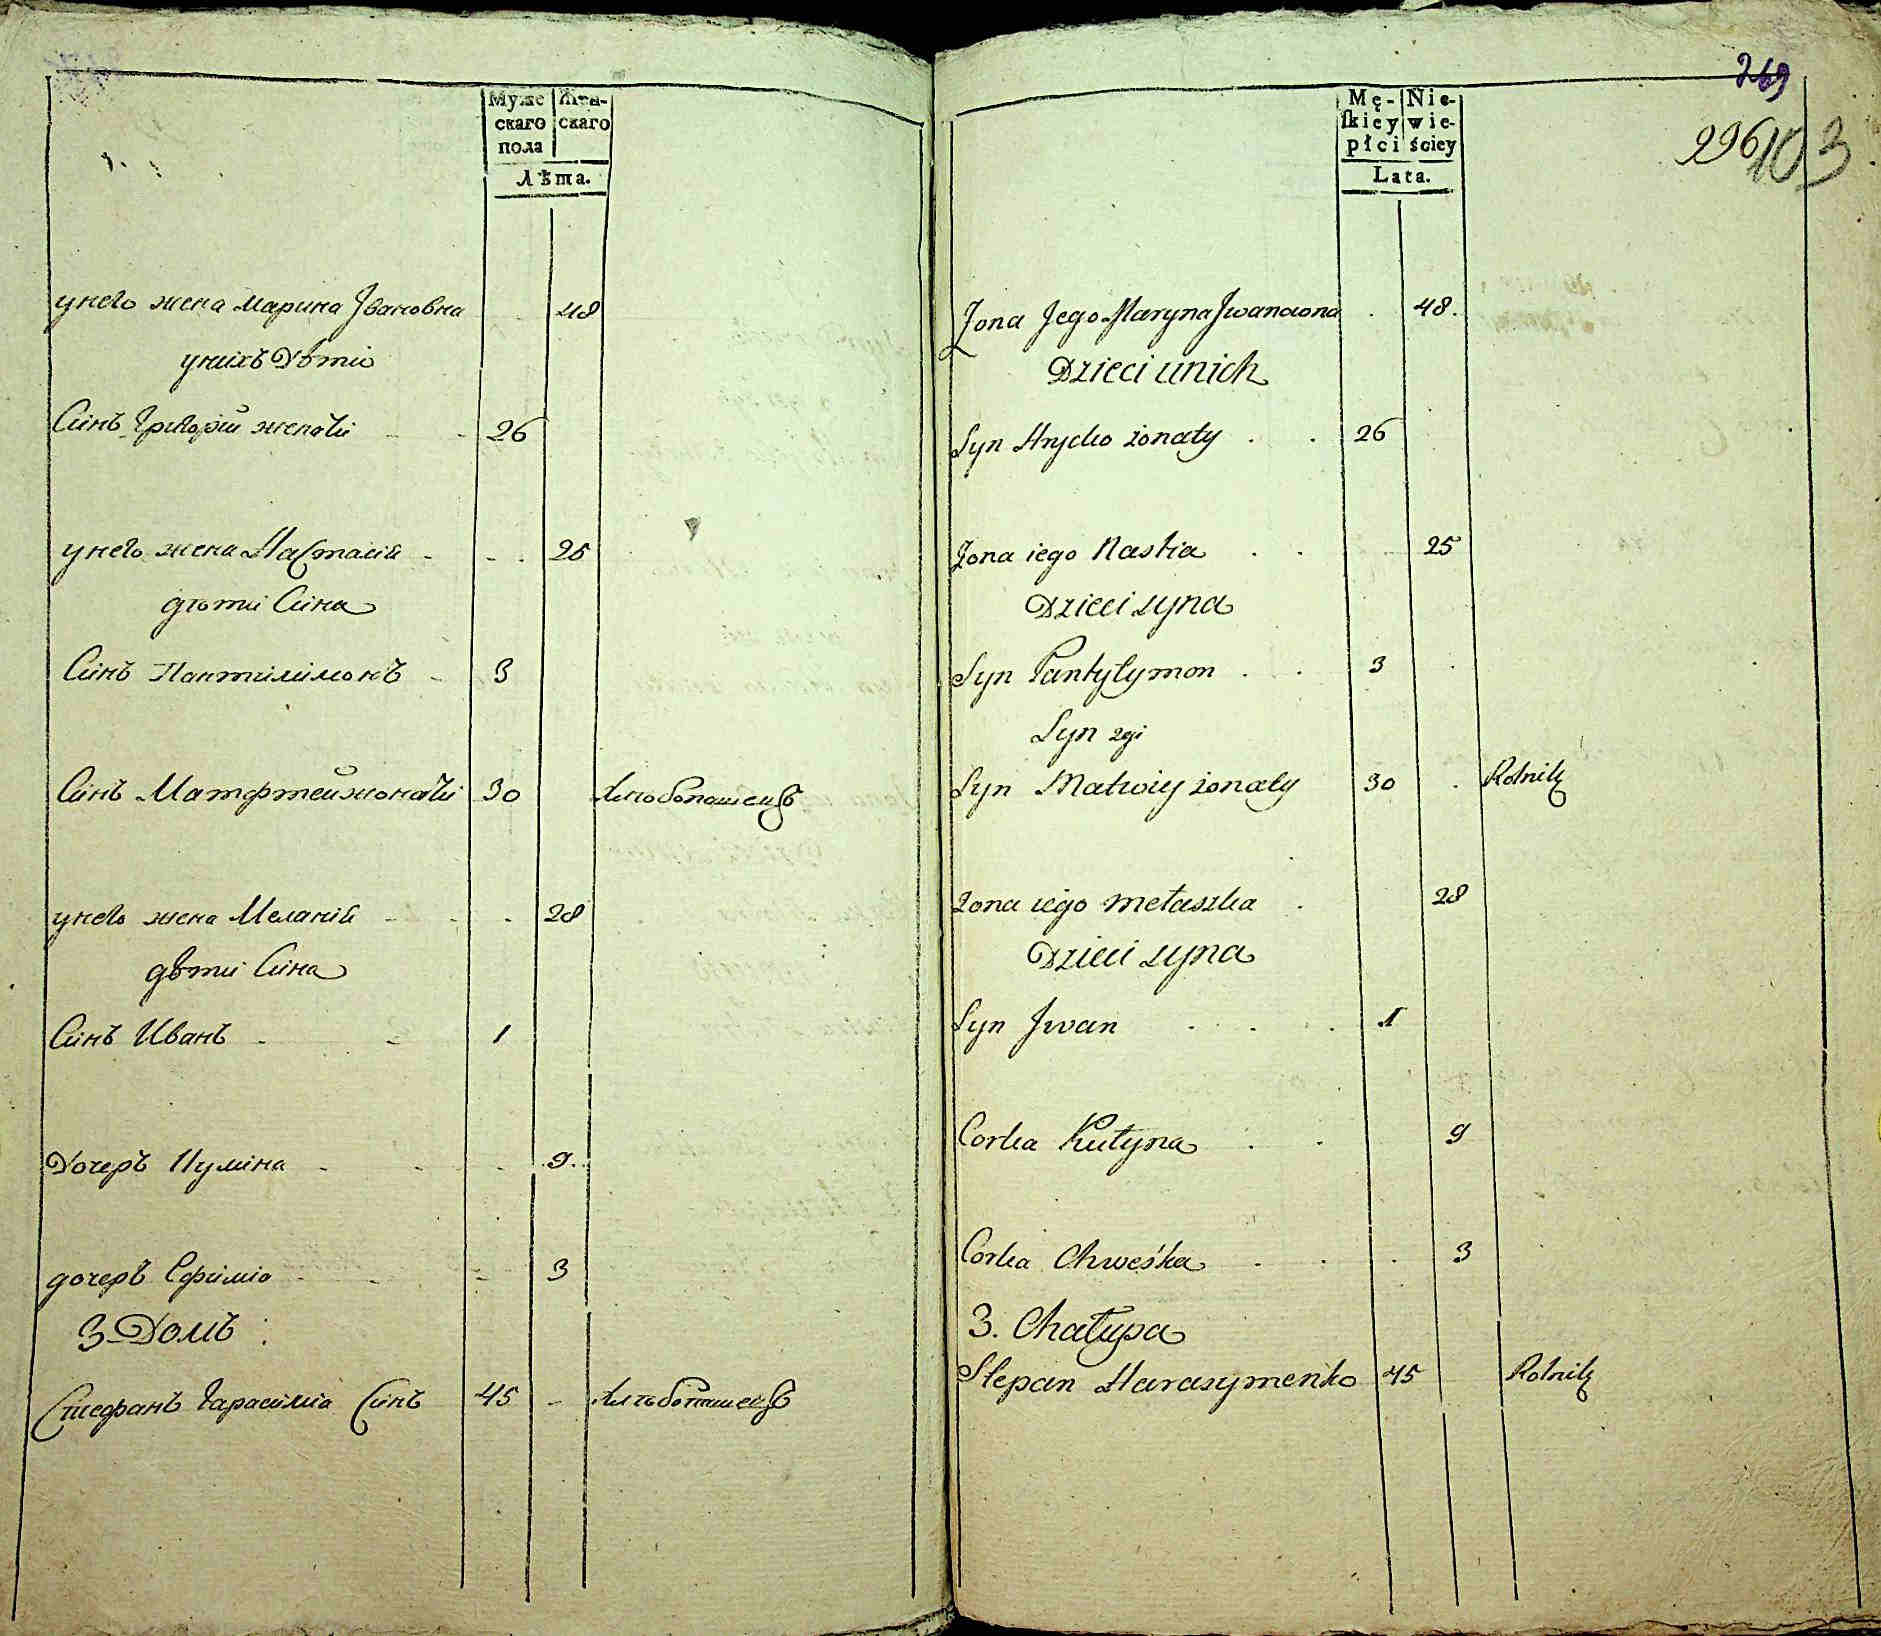 Муже
скаго
пола
Жен-
скаго
Лѣта.
унего жена Марина Івановна 48
унихъ Дѣти
Синъ Григорій женатй 26
унего жена Настасій 25
дѣти Сина
Синъ Пантилимонъ 3
Синъ Матфтей жонатй 30 Хлѣбопашецъ
унего жена Меланій 28
дѣти Сина
Синъ Иванъ 1
Дочеръ Пулина 9
дочеръ Ефиміа 3
3 Домъ
Стефанъ Гарасиміа Синъ 45 Хлѣбопашецъ
249
296
103
Mę-
skiey
płci
Nie-
wie-
ściey
Lata.
Żona Jego Maryna Jwanowna 48.
Dzieci unich
Syn Hrycko żonaty 26
Żona iego Nastia 25
Dzieci syna
Syn Pantyłymon 3
Syn 2gi
Syn Matwiy żonaty 30 Rolnik
Żona iego Metaszka 28
Dzieci syna
Syn Jwan 1
Corka Kułyna 9
Corka Chweśka 3
3. Chałupa
Stepan Harasymenko 45 Rolnik